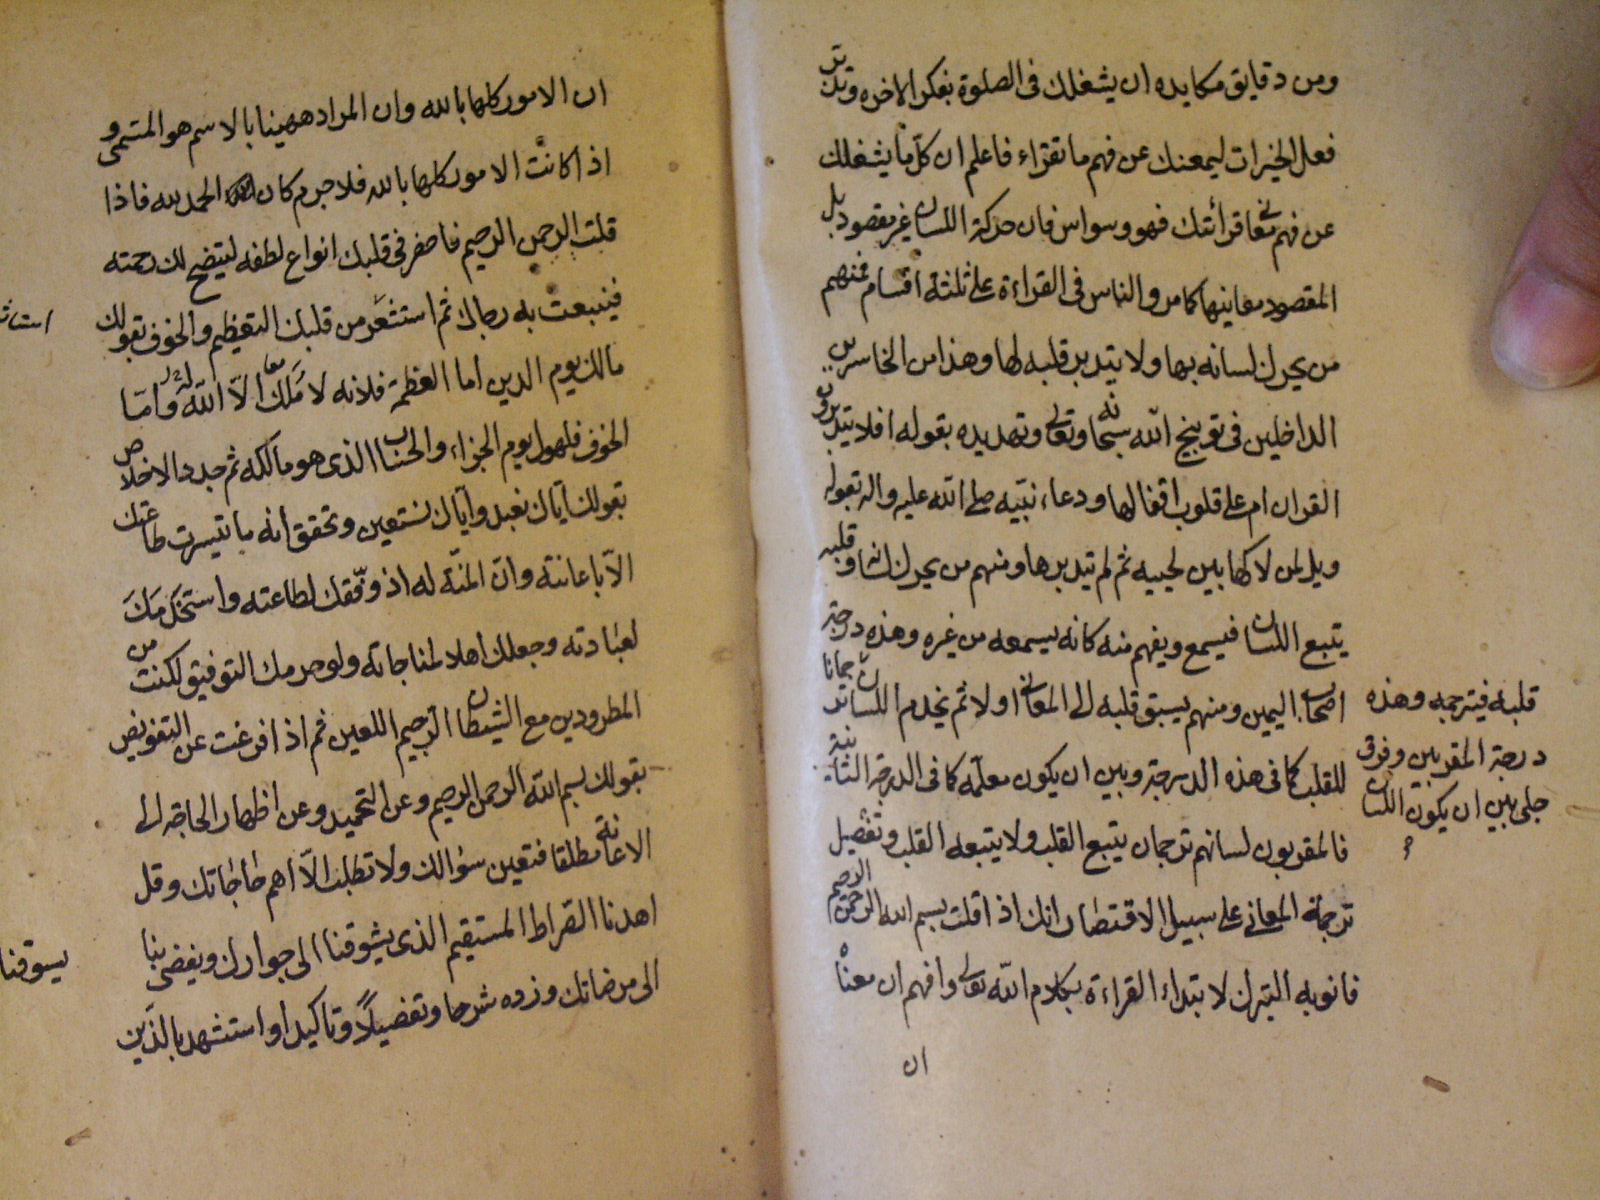 ومن دقايق مكايده ان يشغلك فى الصلوة بفكر الاخره وتدبير
فعل الخيرات ليمعنك عن فهم ما تقراء فاعلم ان كلّ ما يشغلك
عن فهم معا قرائتك فهو وسواس فان حركة اللسان غير مقصود بل
المقصود معاينها كامر والناس فى القراءة على ثلثة اقسام فمنهم
من يحرك لسانه بها ولا يتدبر قلبه لها وهذا من الخاسرين
الداخلين فى توبيخ الله سبحانه وتعالى وتهديده بقوله افلا يتدبرون
القران ام على قلوب اقفالها ودعاء نبيّه صلى الله عليه واله بقوله
ويل لمن لاكها بين لحييه ثم لم يتدبرها ومنهم من يحرك لسانا وقلبه
يتبع اللسان فيسمع ويفهم منه كانه يسمعه من غيره وهذه درجة
اصحاب اليمين ومنهم يسبق قلبه الى المعانى اولا ثم يخدم اللسان
للقلب كما فى هذه الدرجة وبين ان يكون معلّمه كما فى الدرجة الثانية
فالمقربون لسانهم ترجمان يتبع القلب ولا يتبعه القلب وتفصيل
ترجمة المعانى على سبيل الاقتصار انك اذا قلت بسم الله الرحمن الرحيم
فانو به التبرك لابتداء القراءة بكلام الله تعالى وافهم ان معناه
ان
قلبه فيترجمه وهذه
درجة المقربين وفرق
جلى بين ان يكون اللسان
ان الامور كلها بالله وان المراد ههينا بالاسم هو المسمى و
اذا كانت الامور كلها بالله فلا جرم كان الحمد لله فاذا
قلت الرحمن الرحيم فاحضر فى قلبك انواع لطفه ليتضح لك رحمته
فينبعث به رجاك ثم استشعر من قلبك التعظيم والخوف بقولك
مالك يوم الدين اما العظمة فلانه لا ملك الّا الله واما
الخوف فلهول يوم الجزاء والحساب الذى هو مالكه ثم جدد الاخلاص
بقولك ايّاك نعبد وايّاك نستعين وتحقق انه ما تيسرت طاعتك
الّا باعانته وانّ المنّة له اذ وفّقك لطاعته واستخدمك
لعبادته وجعلك اهلا لمناجاته ولو حرمك التوفيق لكنت من
المطرودين مع الشيطان الرجيم اللعين ثم اذ افرغت عن التفويض
بقولك بسم الله الرحمن الرحيم وعن التحميد وعن اظهار الحاجة الى
الاعانة مطلقا فتعين سؤالك ولا تطلب الّا اهم حاجاتك وقل
اهدنا الصراط المستقيم الذى يشوقنا الى جوارك ويفضى بنا
الى مرضاتك وزده شرحا وتفضيلاً وتاكيدا واستشهد بالذين
يسوقنا